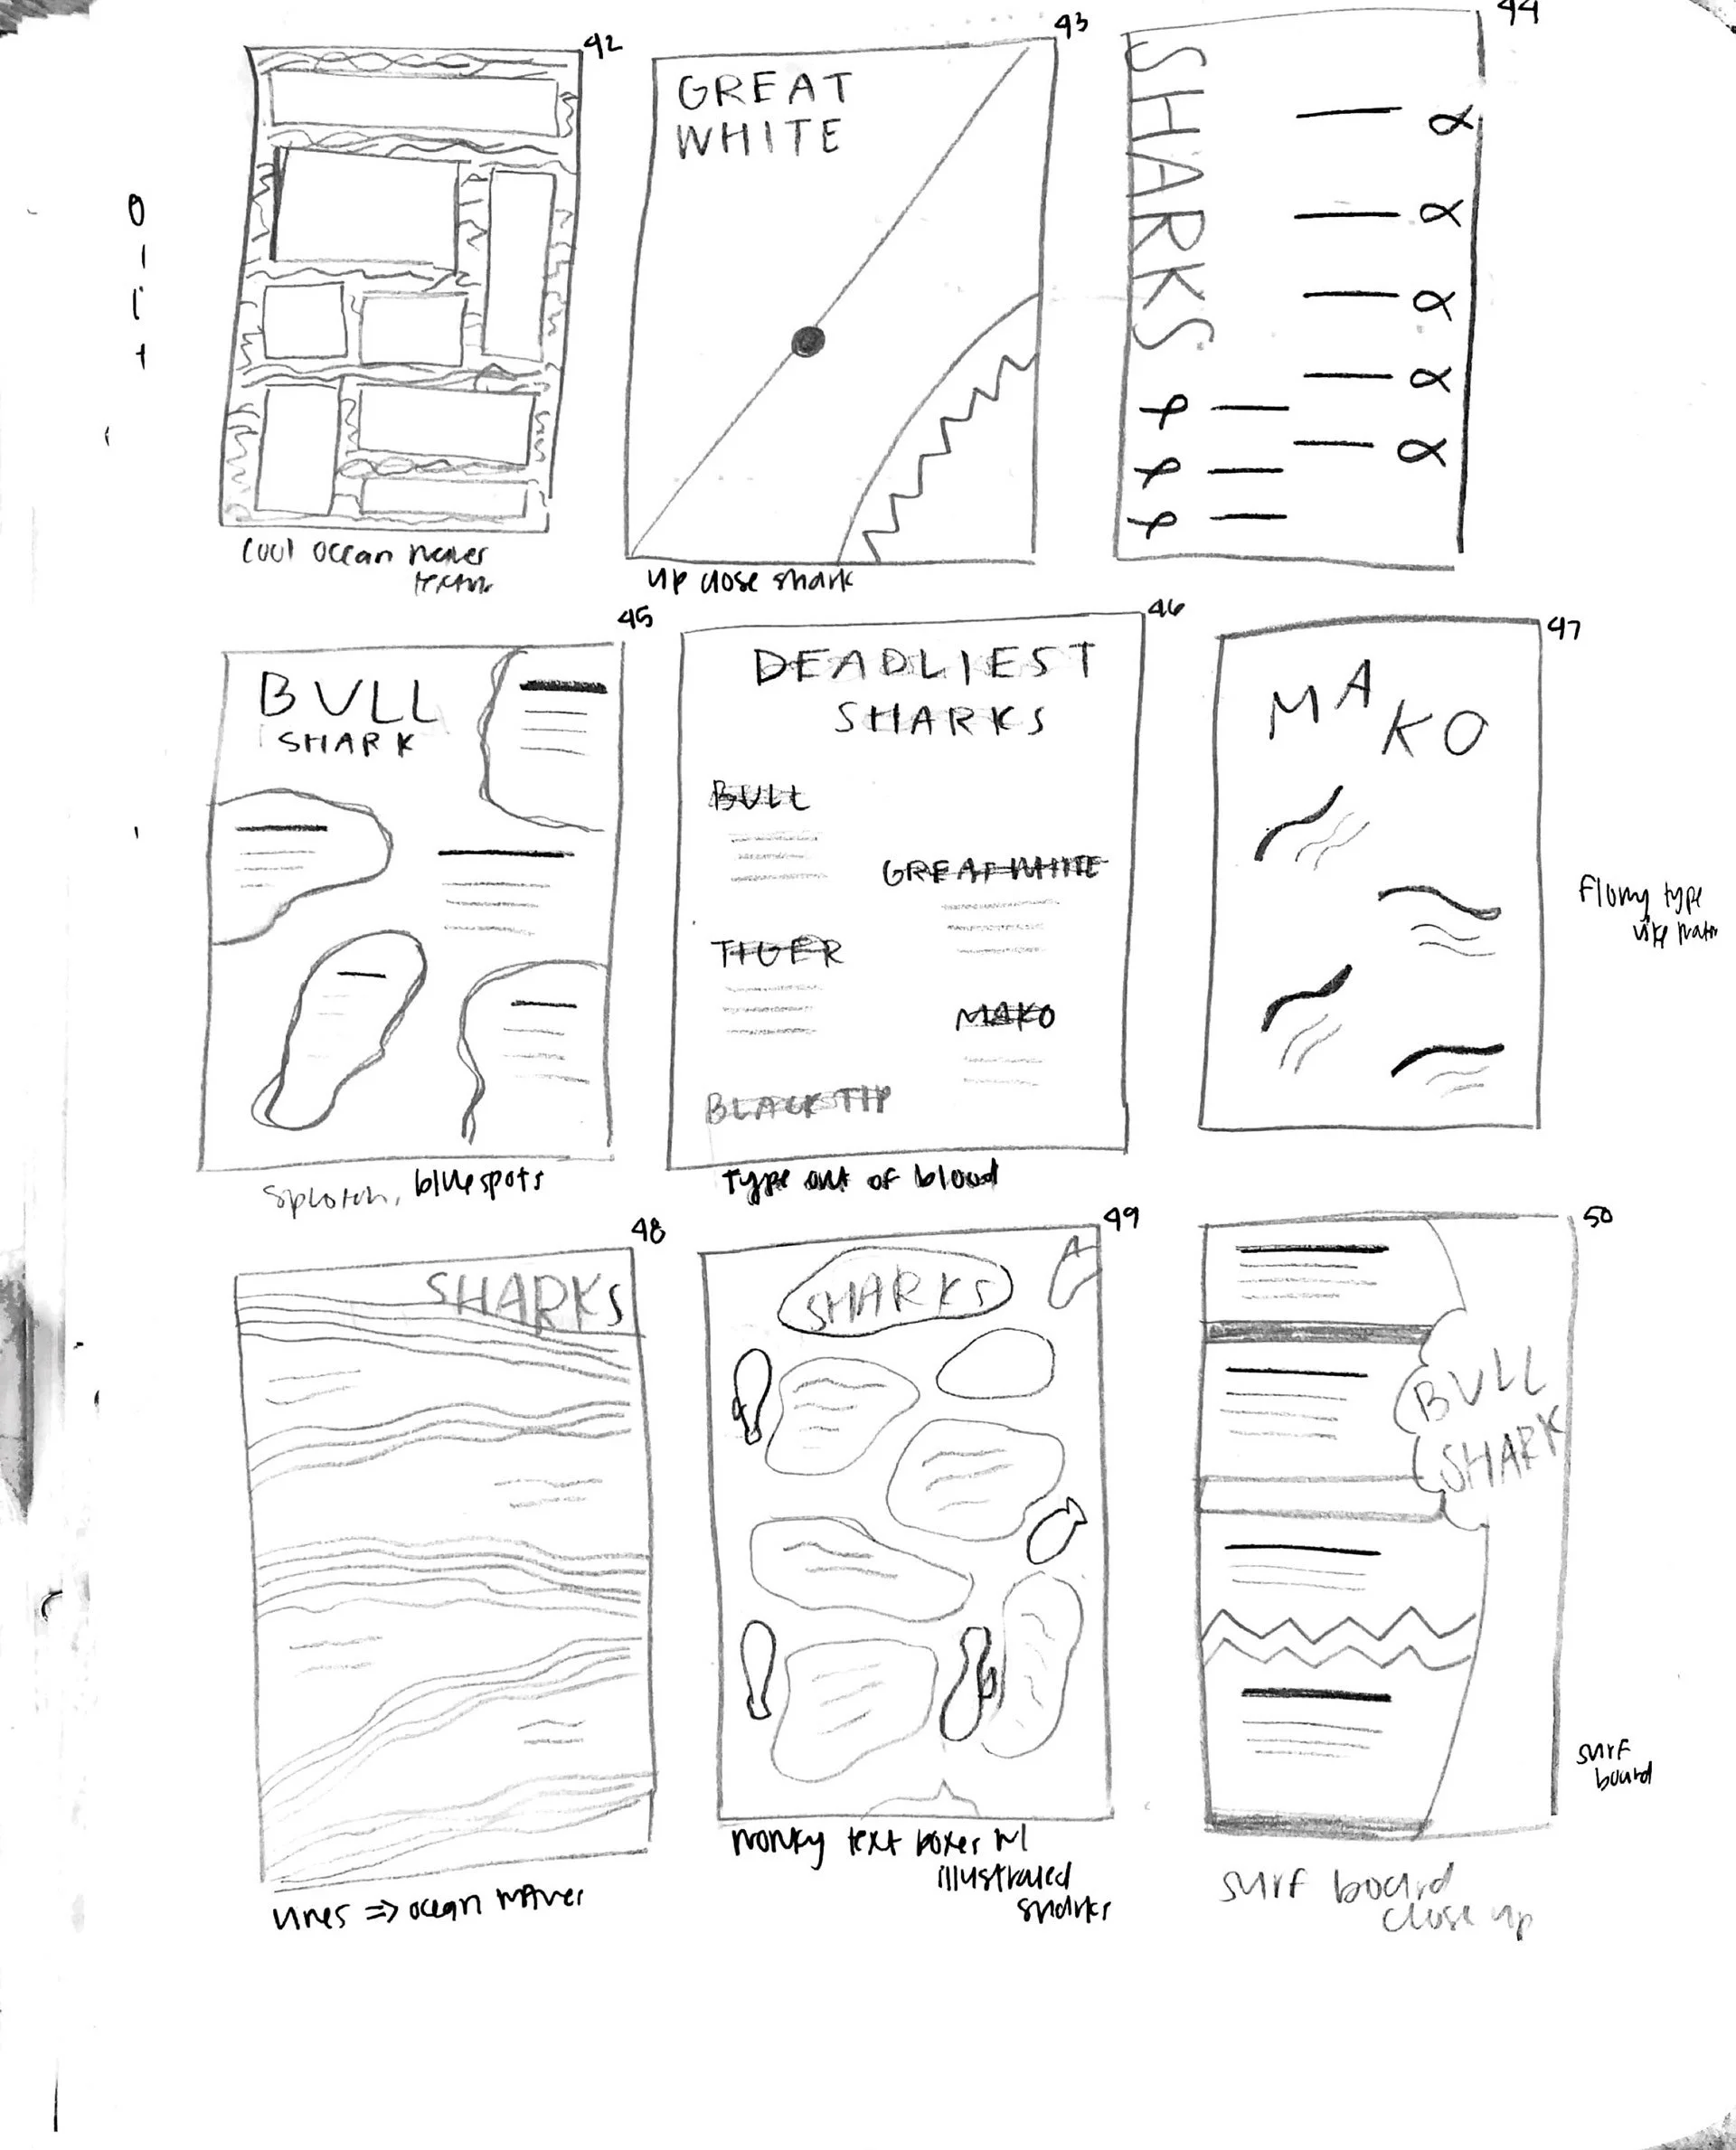 42
43
44
GREAT
WHITE
SHARKS
cool ocean waves
texture
up close shark
45
46
47
BULL
SHARK
DEADLIEST
SHARKS
BULL
GREAT WHITE
TIGER
MAKO
BLACK TIP
MAKO
Flowy type
like water
splotch, blue spots
type out of blood
48
49
50
SHARKS
SHARKS
BULL
SHARK
surf
board
lines => ocean waves
wonky text boxes w/
illustrated
sharks
surf board
close up